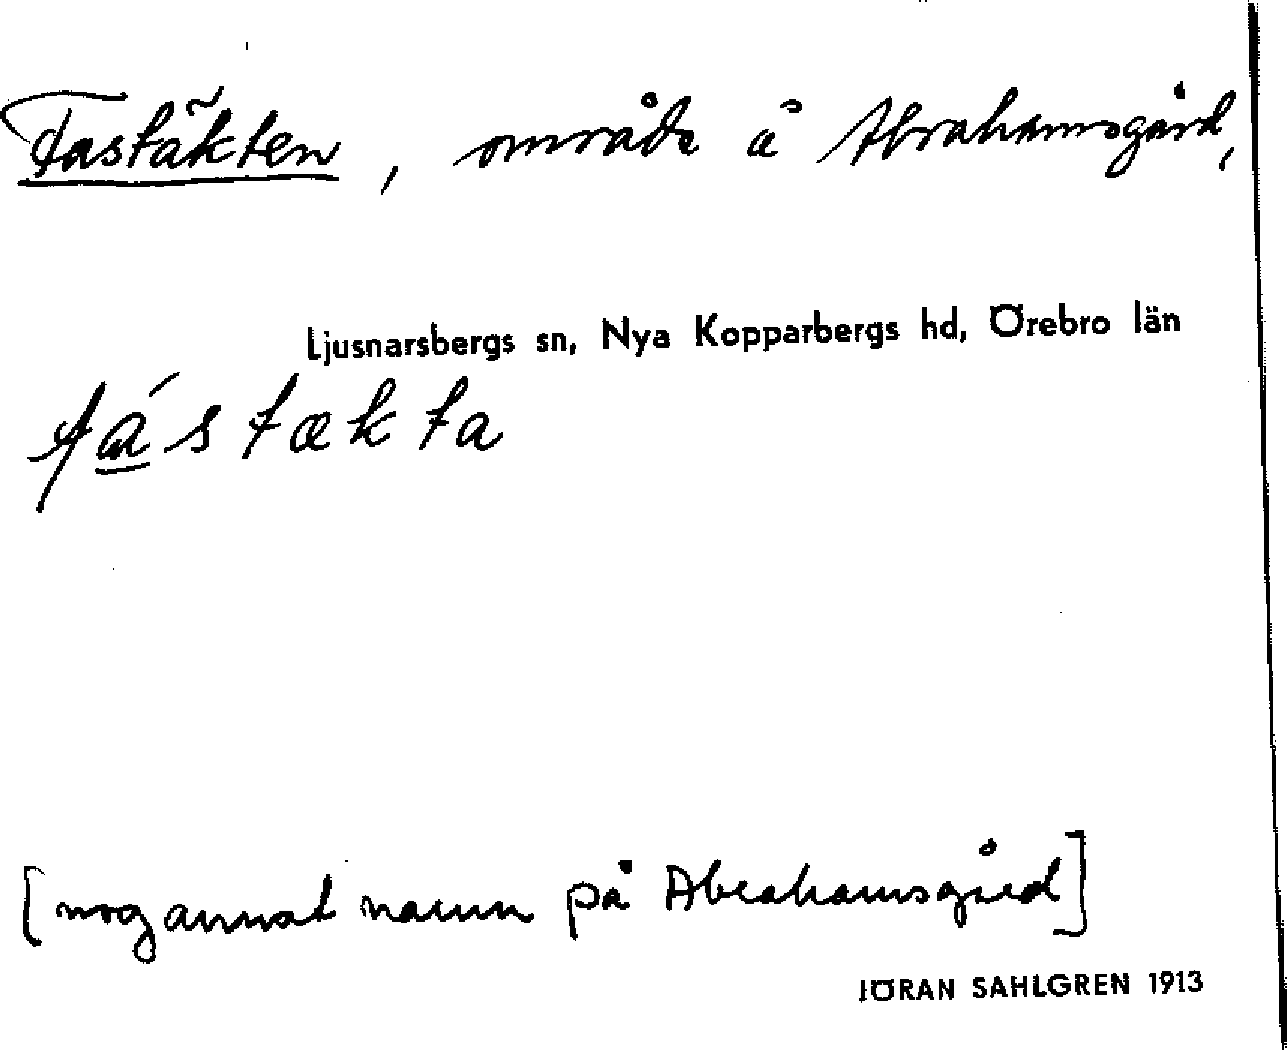 Faståkten, område å Abrahamsgård,
Ljusnarsbergs sn, Nya Kopparbergs hd, Örebro län
fástækta
[nog annat namn på Abrahamsgård]
JÖRAN SAHLGREN 1913